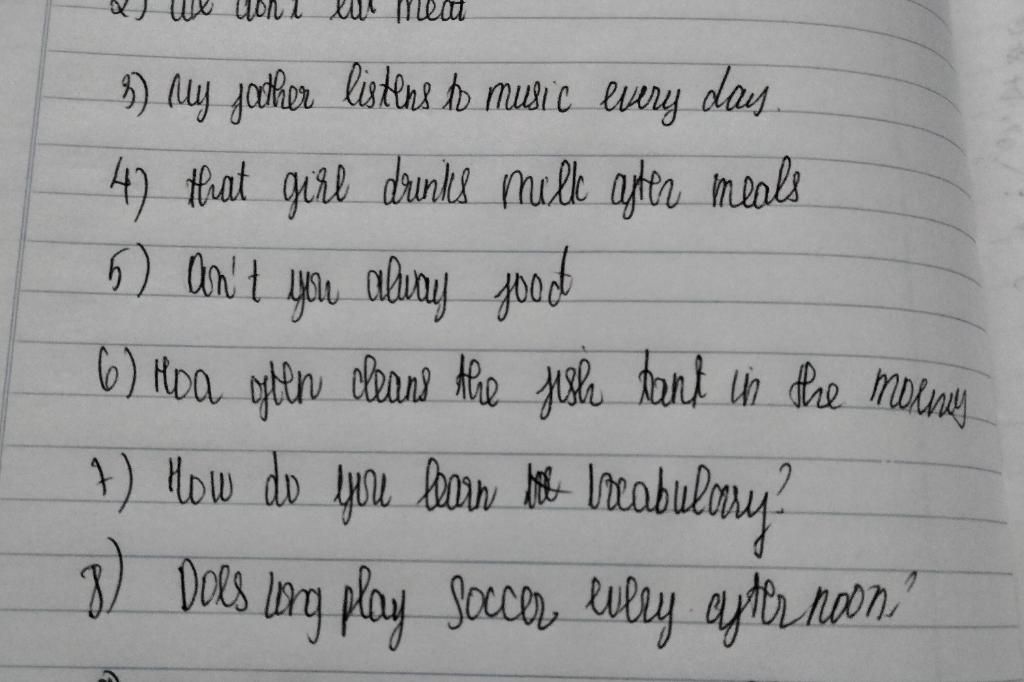 2) We don't eat meat
3) My father listens to music every day.
4) that girl drinks milk after meals
5) Don't you alway food
6) Hoa often cleans the fish tank in the morning
7) How do you learn vocabulary?
8) Does Long play soccer every afternoon?